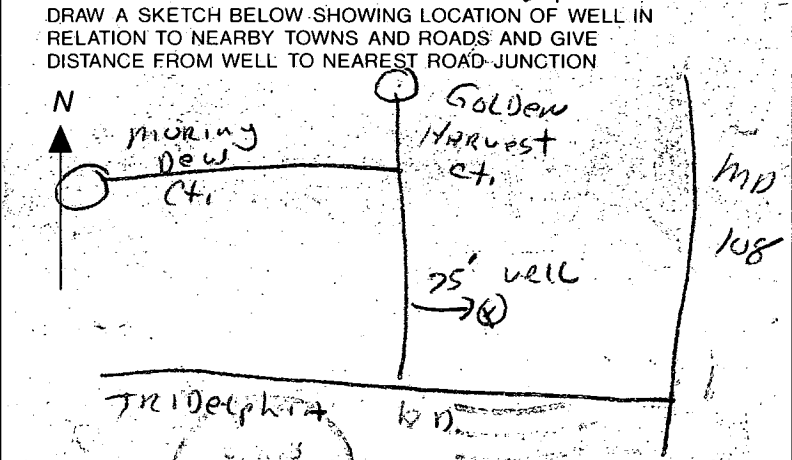 DRAW A SKETCH BELOW SHOWING LOCATION OF WELL IN
RELATION TO NEARBY TOWNS AND ROADS AND GIVE
DISTANCE FROM WELL TO NEAREST ROAD JUNCTION
N
GOLDEN
HARVEST
Ct.
MORING
Dew
Ct.
MD
108
75' WELL
TRIDelphIA RD.